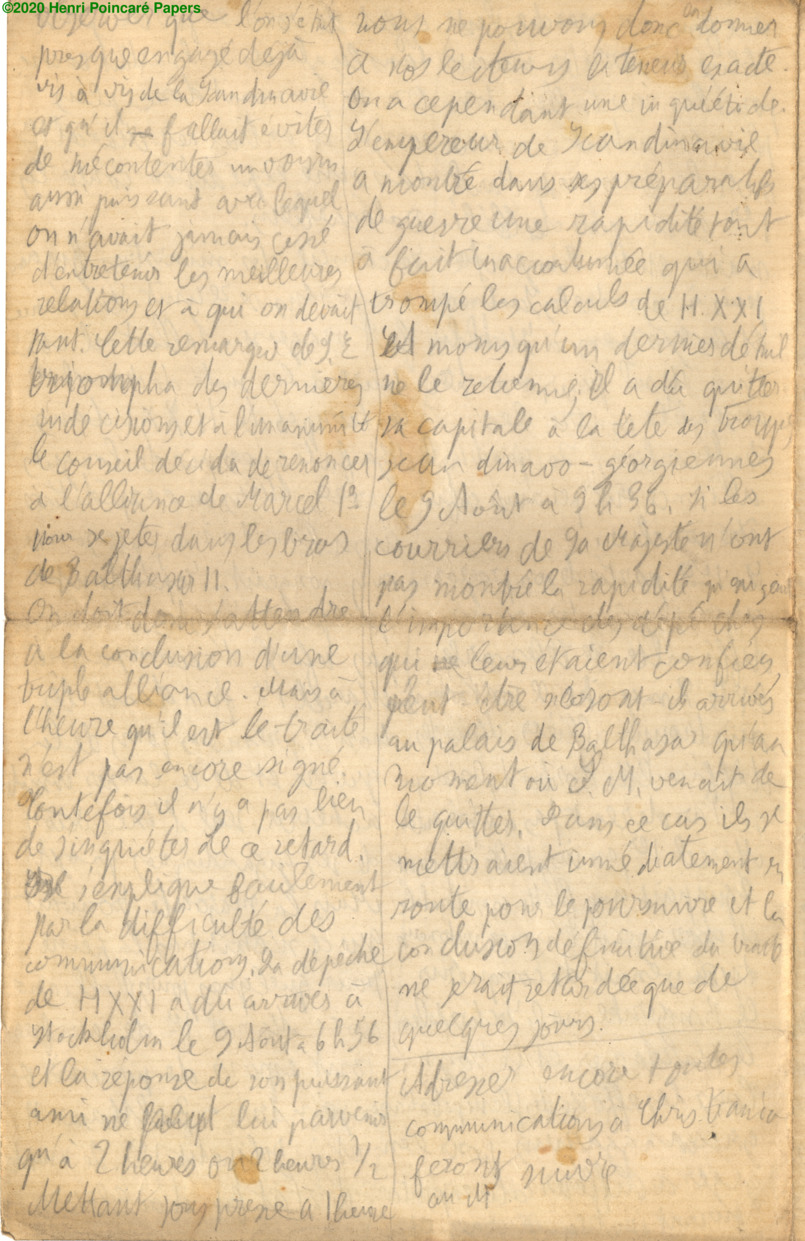 ©2020 Henri Poincaré Papers
que l'on s'était
presque engagé déjà
vis à vis de la Scandinavie
et qu'il fallait éviter
de mécontenter un voisin
aussi puissant avec lequel
on n'avait jamais cessé
d'entretenir les meilleures
relations et à qui on devait
tant. Cette remarque de S. E
triompha des dernières
indécisions et à l'unanimité
le conseil décida de renoncer
à l'alliance de Marcel 1er
pour se jeter dans les bras
de Balthasar II.
On doit donc s'attendre
à la conclusion d'une
triple alliance. Mais à
l'heure qu'il est le traité
n'est pas encore signé.
Toutefois il n'y a pas lieu
de s'inquiéter de ce retard.
Il s'explique facilement
par la difficulté des
communications. La dépêche
de HXXI a dû arriver à
Stockholm le 9 Août à 6h56
et la réponse de son puissant
ami ne peut lui parvenir
qu'à 2 heures ou 2 heures 1/2
Mettant sous presse à 1 heure
nous ne pouvons donc en donner
à nos lecteurs la teneur exacte.
On a cependant une inquiétude.
L'empereur de Scandinavie
a montré dans ses préparatifs
de guerre une rapidité tout
à fait inaccoutumée qui a
trompé les calculs de H.XXI
et moins qu'un dernier détail
ne le retienne, il a dû quitter
sa capitale à la tête des troupes
scandinavo-géorgiennes
le 9 Août à 9h 36. Si les
courriers de Sa Majesté n'ont
pas montré la rapidité qu'exigeait
l'importance des dépêches
qui leur étaient confiées
peut-être ne sont-ils arrivés
au palais de Balthasar qu'au
moment où S. M. venait de
le quitter. Dans ce cas ils se
mettraient immédiatement en
route pour le poursuivre et la
conclusion définitive du traité
ne serait retardée que de
quelques jours.
Adresser encore toutes
communications à Chris
feront suivre